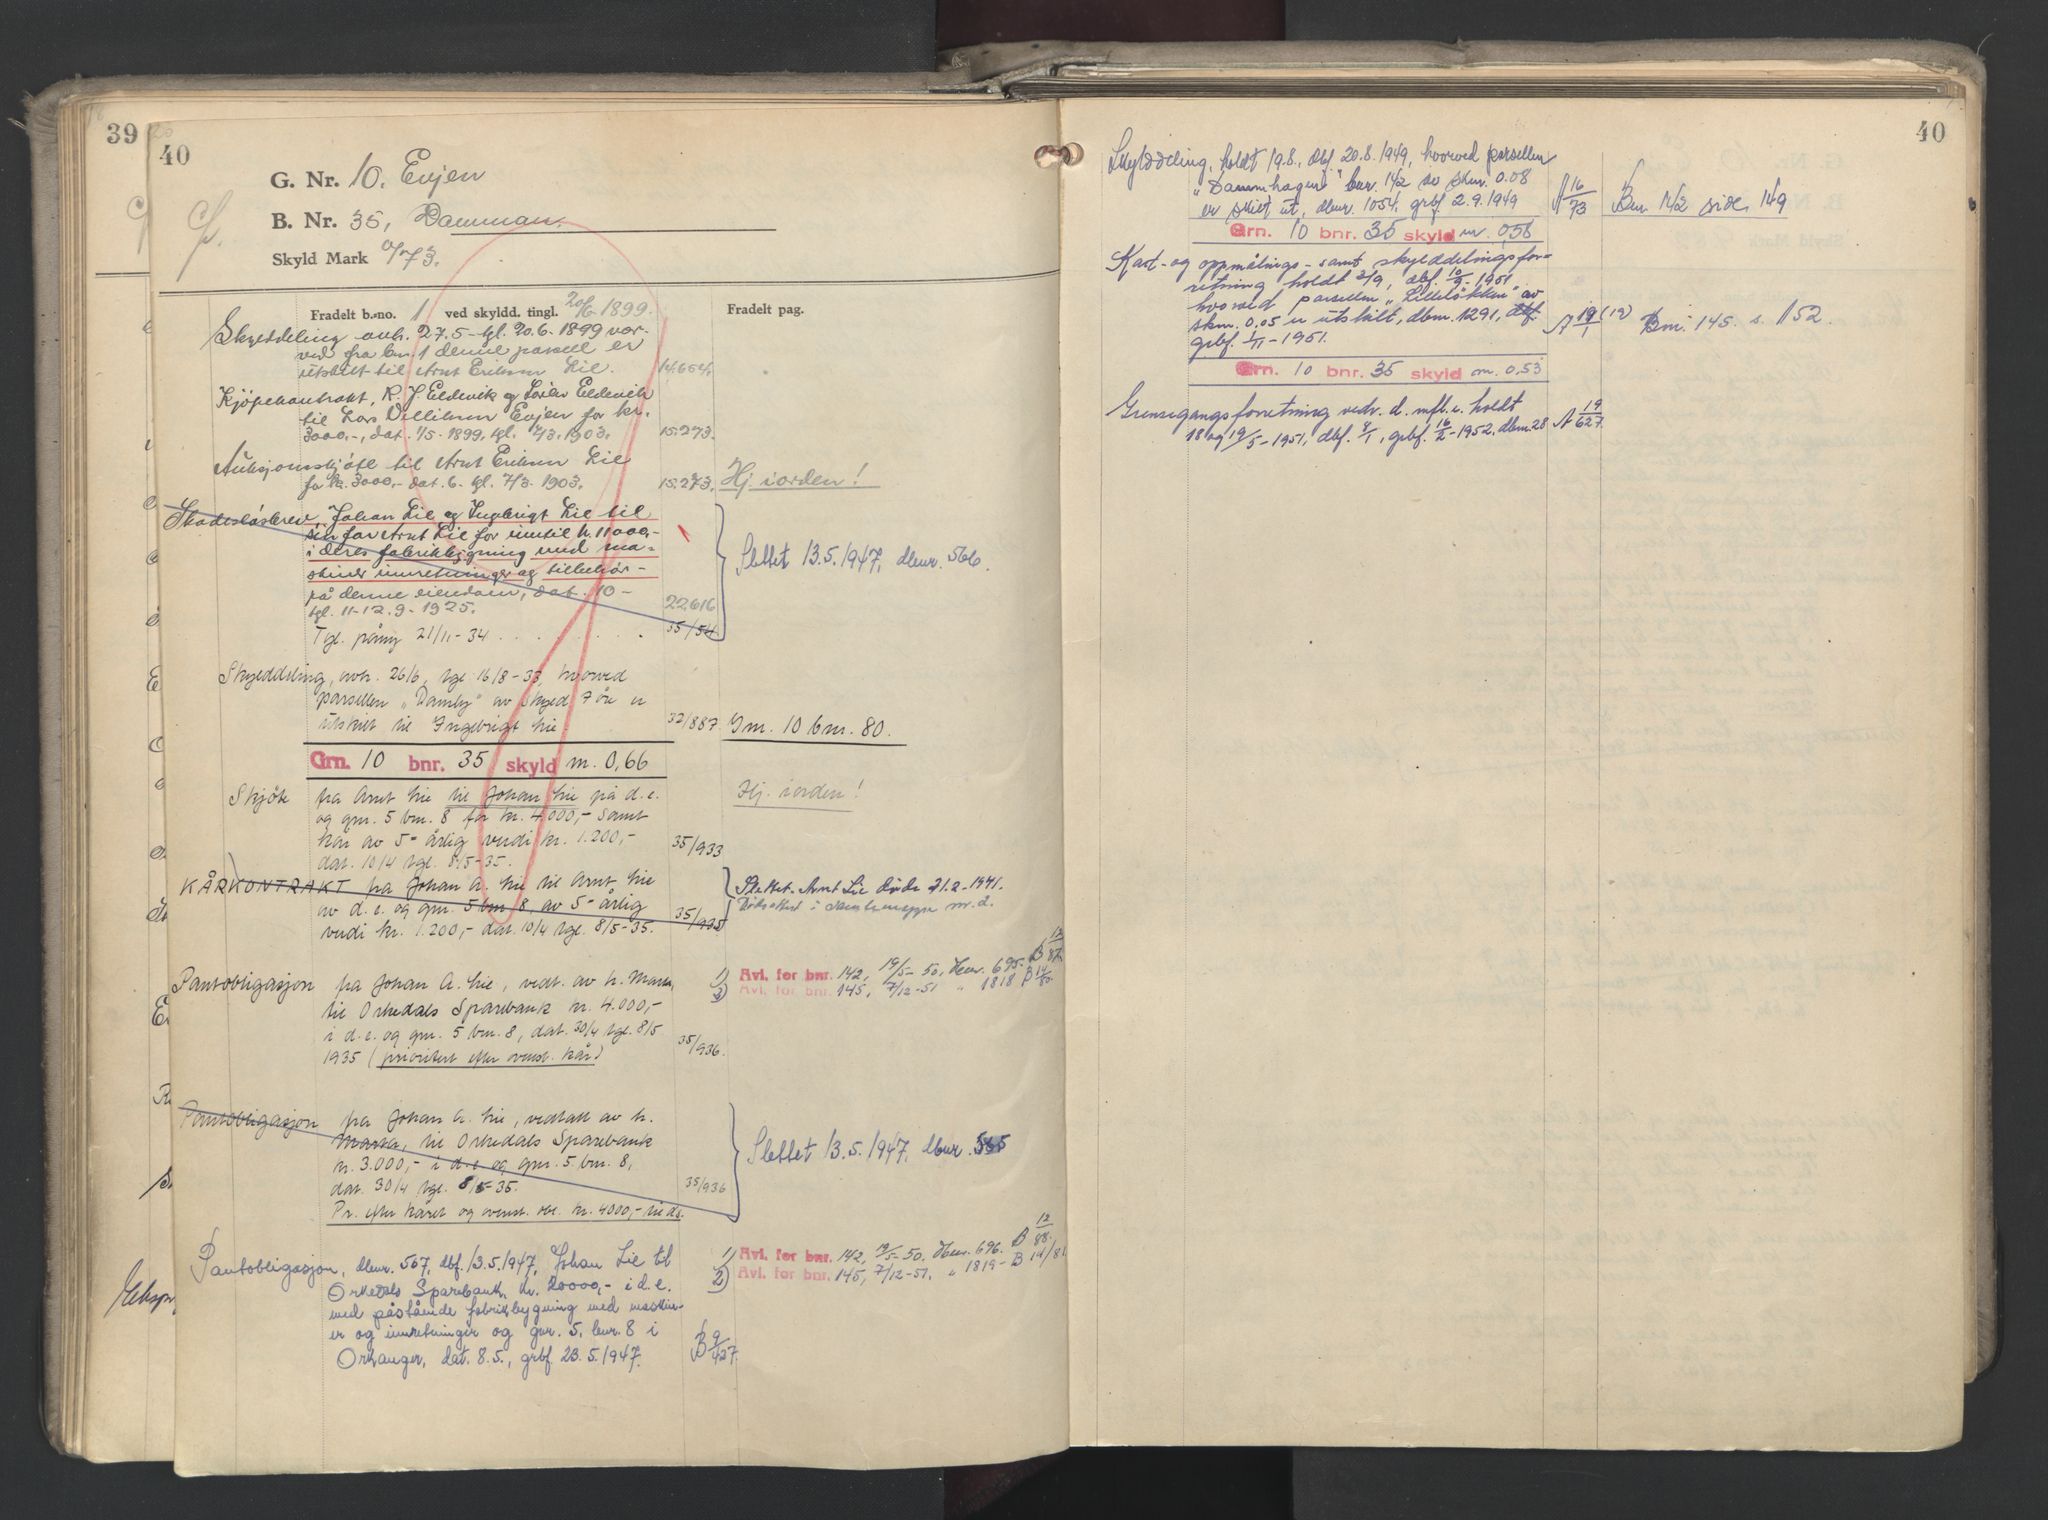 39
40
G. Nr. 10. Evjen
B. Nr. 35, Damman.
Skyld Mark 0/73.
Fradelt b.-no. 1 ved skyldd. tingl. 20/6 1899.
Fradelt pag.
Skylddeling avh. 27.5- tgl. 20.6-1899 vor-
ved fra bnr. 1 denne parsell er
utskilt til Arnt Eriksen Lie. 14.664.
Kjöpekontrakt, R. J. Eldevik og Eldevik
til Lars Villiksen Evjen for kr.
3000,-, dat. 1/5-1899, tgl. 7/3.1903. 15.273.
Auksjonsskjöte til Arnt Eriksen Lie
for kr. 3000,- dat. 6.- tgl. 7/3-1903. 15.273. Hj. i orden!
Skadeslösbrev, Johan Lie og Ingebrigt Lie til
sin far Arnt Lie for inntil kr. 11000,-
i deres fabrikbygning med ma-
skiner innretninger og tilbehör-
på denne eiendom, dat. 10-
tgl. 11-12.9-1925. 22616
Tgl. påny 21/11-34 . . . . . . 35/54
Slettet 13.5.1947, dbnr. 566.
Skylddeling, avh. 26/6, tgl. 16/8-33, hvorved
parsellen "Damly" av skyld 7 öre er
utskilt til Ingebrigt Lie. 32/887 Gnr. 10 bnr. 80.
Grn. 10 bnr. 35 skyld m. 0,66
Skjöte fra Arnt Lie til Johan Lie på d.e.
og gnr. 5 bnr. 8 for kr. 4.000,- samt
kår av 5-årlig verdi kr. 1.200,-
dat. 10/4 tgl. 8/5-35. 35/933
Hj. i orden!
KÅRKONTRAKT fra Johan A. Lie til Arnt Lie
av d.e. og gnr. 5 bnr 8, av 5-årlig
verdi kr. 1.200,- dat. 10/4 tgl. 8/5-35. 35/935
Slettet. Arnt Lie døde 21.2-1941.
Dödsattest i nr. 2.
Pantobligasjon fra Johan A. Lie, vedt. av h. Marta,
til Orkedals Sparebank kr. 4.000,-
i d.e. og gnr. 5 bnr. 8, dat. 30/4 tgl. 8/5
1935 (prioritert efter ovenst. kår) 35/936.
1) Avl. for bnr. 142, 19/5-50, dbnr. 695- B 12/87.
2) Avl. for bnr. 145, 7/12-51 " 1818 B 14/80.
Pantobligasjon fra Johan A. Lie, vedtatt av h.
Marta, til Orkedals Sparebank
kr. 3.000,- i d.e og gnr. 5. bnr. 8,
dat. 30/4 tgl. 8/5-35. 35/936
Pr. efter kåret og ovenst. obl. kr. 4000,- tils.
Slettet 13.5.1947, dbnr. 565
Pantobligasjon, dbnr. 567, dbf. 13.5.1947, Johan Lie til
Orkedals Sparebank, kr. 20000,- i d.e.
med påstående fabrikbygning med maskin-
er og innretninger og gnr. 5, bnr. 8 i
Orkanger, dat. 8.5., grbf. 23.5.1947. B 9/427.
1) Avl. for bnr. 142, 19/5-50. dbnr. 696. B 12/88.
2) Avl. for bnr. 145, 7/12-51. " 1819- B 14/81
40
Skylddeling, holdt 19.8., dbf. 20.8.1949, hvorved parsellen
"Dammhagen" bnr. 142 av skm. 0.08
er skilt ut, dbnr. 1054, grbf. 2.9.1949 A 16/73 Bnr. 142 side 149
Grn. 10 bnr. 35 skyld m. 0,58
Kart- og oppmålings- samt skylddelingsfor-
retning holdt 3/9, dbf. 10/9-1951
hvorved parsellen "Lilleløkken" av
skm. 0.05 er utskilt, dbnr. 1291, dbf.
grbf. 1/11-1951. A 19/1 (19) Bnr. 145. s. 152.
Grn. 10 bnr. 35 skyld m. 0,53
Grensegangsforretning vedr. d. mfl. e. holdt
18 og 19/5-1951, dbf. 9/1, grbf. 16/2-1952, dbnr. 28 A 19/627.